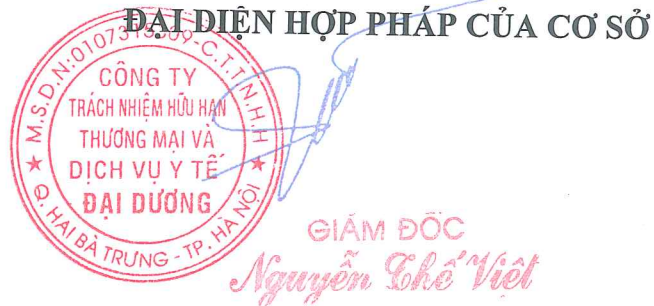 ĐẠI DIỆN HỢP PHÁP CỦA CƠ SỞ
CÔNG TY
TRÁCH NHIỆM HỮU HẠN
THƯƠNG MẠI VÀ
DỊCH VỤ Y TẾ
ĐẠI DƯƠNG
Q. HAI BÀ TRƯNG - TP. HÀ NỘI
GIÁM ĐỐC
Nguyễn Thế Việt